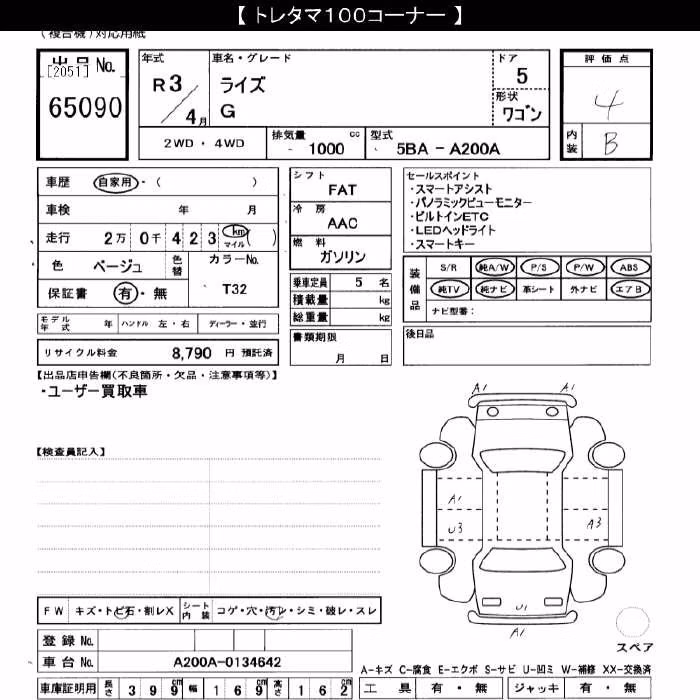 【 トレタマ100コーナー 】
(複合機)対応用紙
出品 No.
[2051]
65090
年式
R 3 / 4 月
車名・グレード
ライズ
G
ドア
5
形状
ワゴン
評価点
4
内装
B
2WD・4WD
排気量 1000 cc
型式 5BA - A200A
車歴 自家用・( )
車検 年 月
走行 2万 0千 4 2 3 km マイル ( )
色 ベージュ
色替
カラーNo.
T32
保証書 有・無
モデル年式 年 ハンドル 左・右 ディーラー・並行
リサイクル料金 8,790 円 預託済
シフト
FAT
冷房
AAC
燃料
ガソリン
乗車定員 5 名
積載量 kg
総重量 kg
書類期限
月 日
セールスポイント
・スマートアシスト
・パノラミックビューモニター
・ビルトインETC
・LEDヘッドライト
・スマートキー
装備品
S/R 純A/W P/S P/W ABS
純TV 純ナビ 革シート 外ナビ エアB
ナビ型番:
後日品
【出品店申告欄(不良箇所・欠品・注意事項等)】
・ユーザー買取車
【検査員記入】
A1 A1
A1
U3 A3
U1
A1
スペア
FW キズ・トビ石・割レX
シート内装 コゲ・穴・汚レ・シミ・破レ・スレ
登録 No.
車台 No. A200A-0134642
車庫証明用 長さ 3 9 9 cm 幅 1 6 9 cm 高さ 1 6 2 cm
A-キズ C-腐食 E-エクボ S-サビ U-凹ミ W-補修 XX-交換済
工具 有・無 ジャッキ 有・無